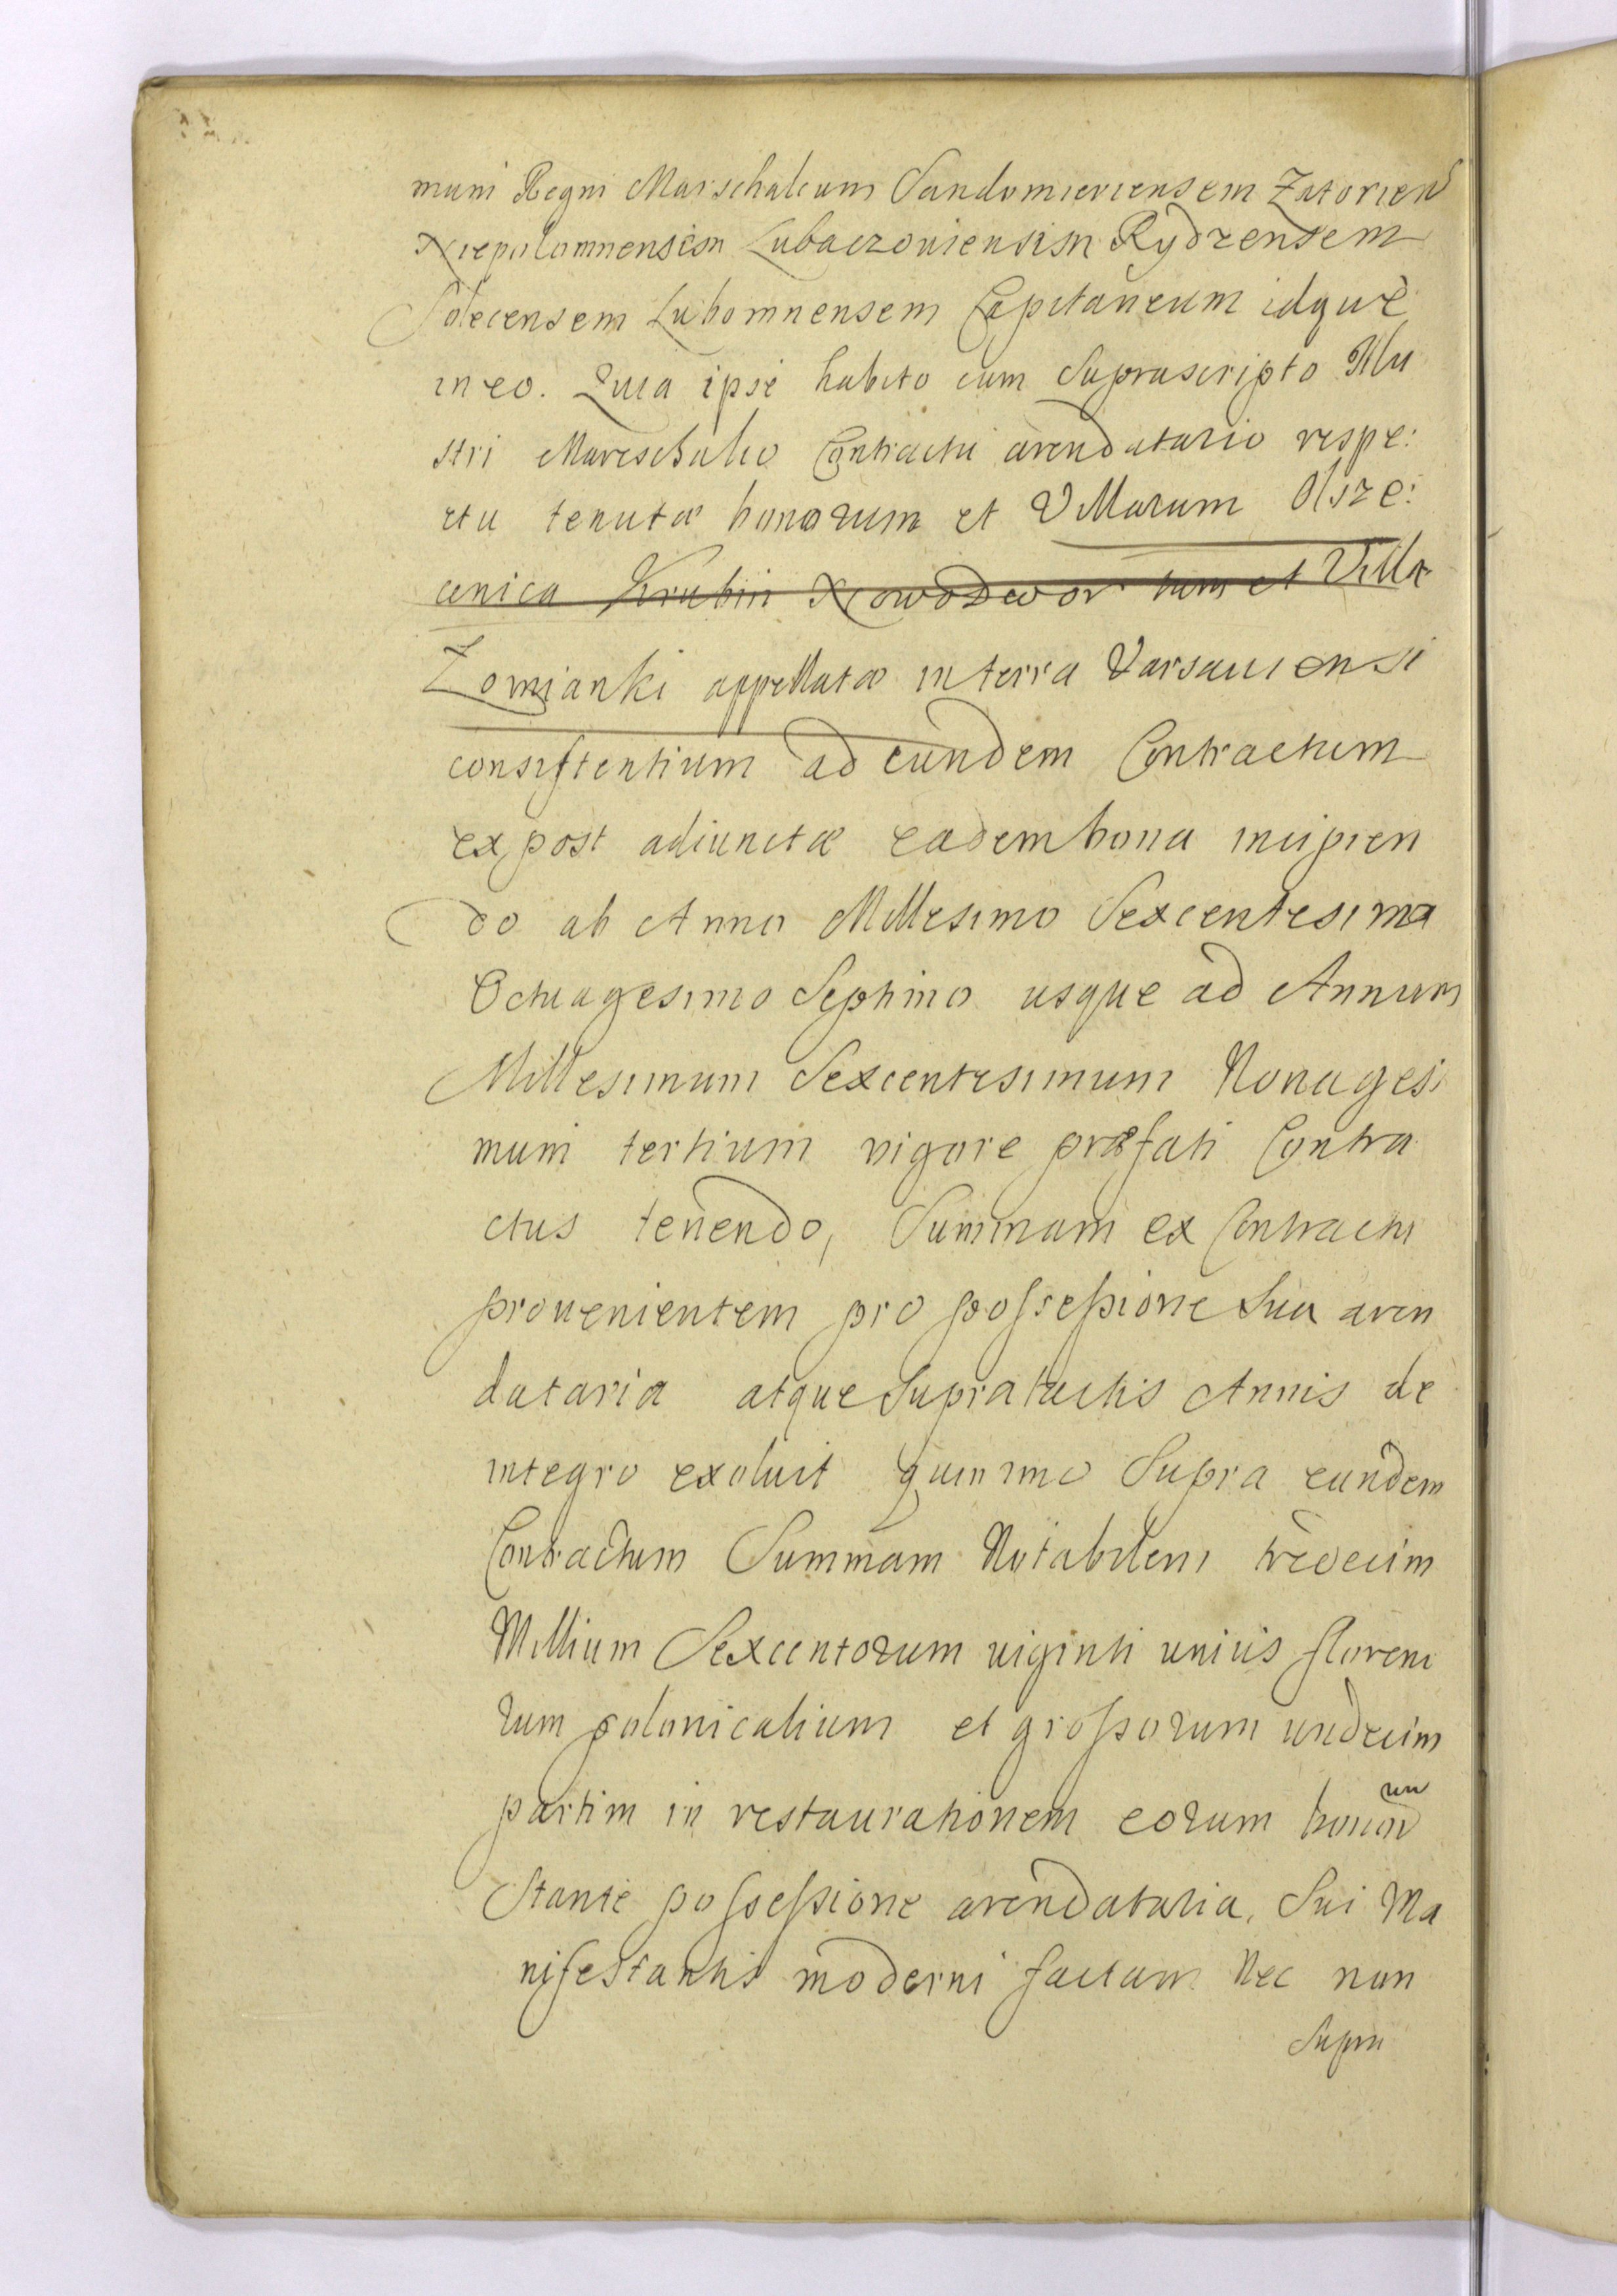 mum Regni Marschalcum Sandomieriensem Zatorien
Niepolomnensem Lubaczouiensem Rydzensem
Solecensem Lubomnensem Capitaneum idque
in eo. Quia ipse habito cum Suprascripto Illu
stri Mareschalco Contractu arendatario respe:
ctu tenutæ bonorum et Villarum Olsze:
wnica Krubin Nowodwor tum et Villæ
Zomianki appellatæ in terra Varsauiensi
consistentium ad eundem Contractum
ex post adiunctæ eadem bona incipien
do ab Anno Millesimo Sexcentesimo
Octuagesimo Septimo usque ad Annum
Millesimum Sexcentesimum Nonagesi
mum tertium vigore præfati Contra
ctus tenendo, Summam ex Contractu
prouenientem pro possessione Sua aren
dataria atque Supratactis Annis de
integro exoluit quin imo Supra eundem
Contractum Summam Notabilem tredecim
Millium Sexcentorum viginti unius floreno
rum polonicalium et grossorum undecim
partim in restaurationem eorum bonor um
Stante possessione arendataria, Sui Ma
nifestantis moderni factam Nec non
Supra